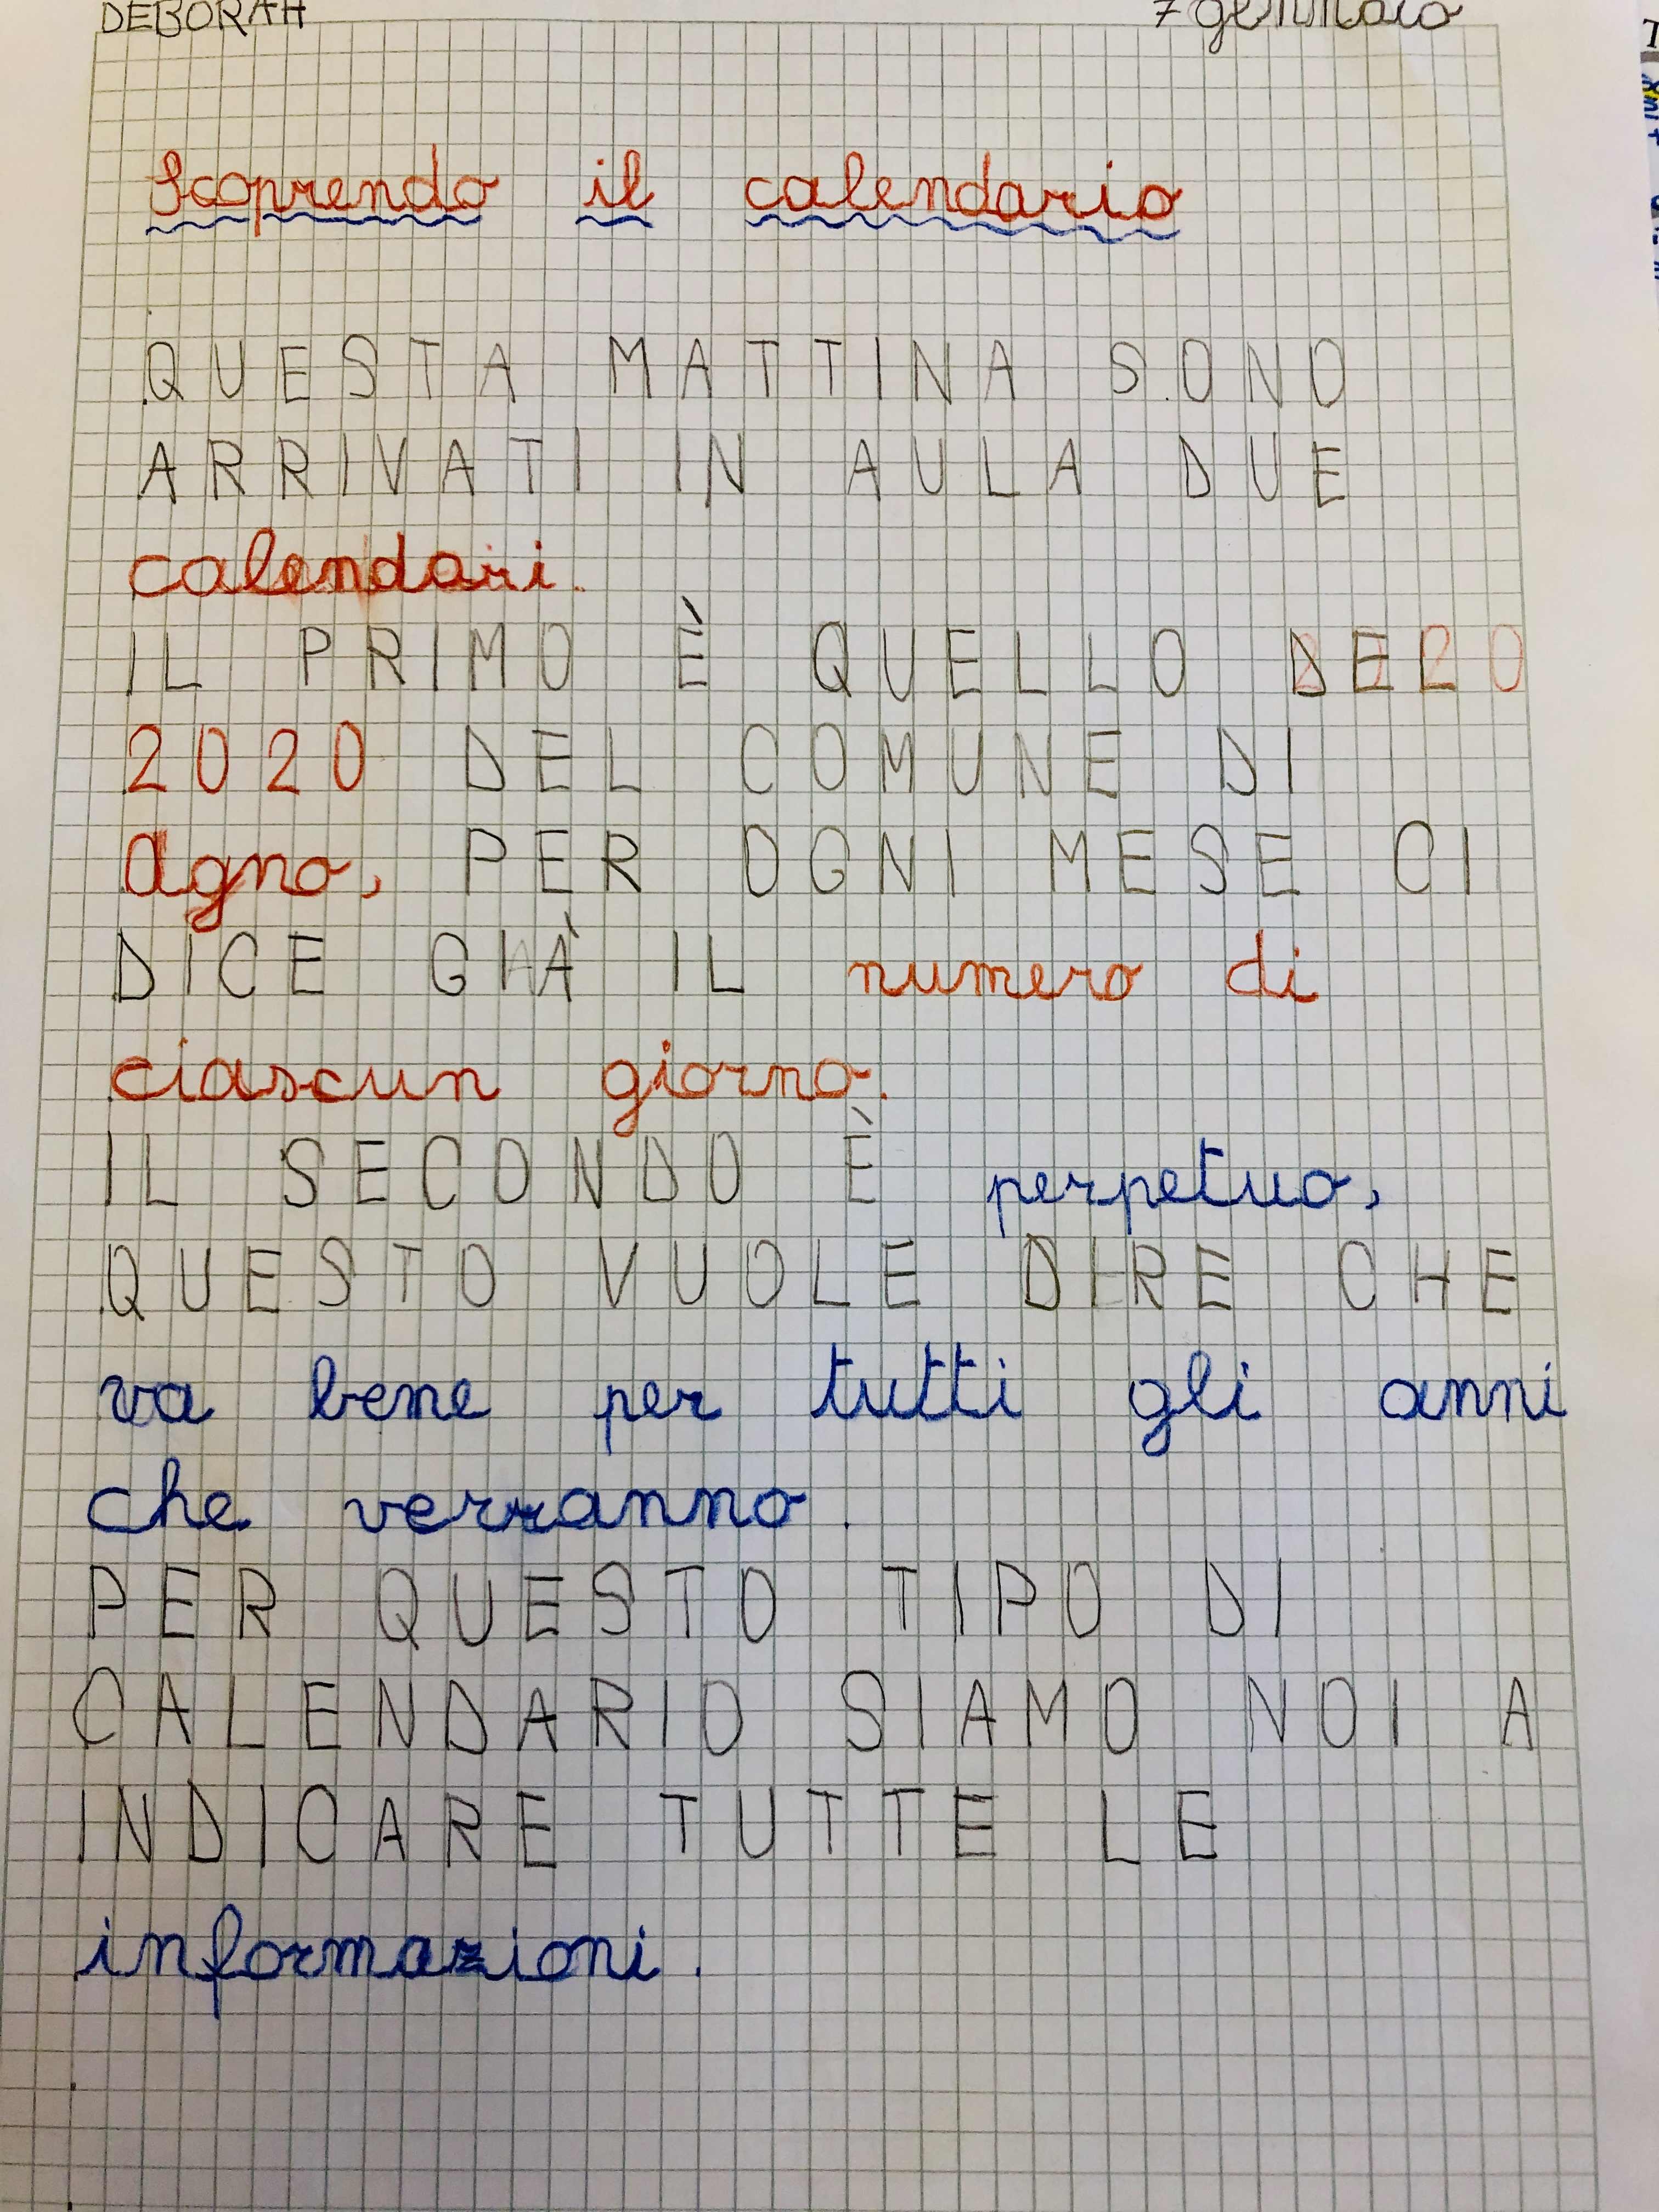 DEBORAH 7 gennaio
Scoprendo il calendario
QUESTA MATTINA SONO
ARRIVATI IN AULA DUE
calendari.
IL PRIMO È QUELLO DEL
2020 DEL COMUNE DI
Agno, PER OGNI MESE CI
DICE GIÀ IL numero di
ciascun giorno.
IL SECONDO È perpetuo,
QUESTO VUOLE DIRE CHE
va bene per tutti gli anni
che verranno.
PER QUESTO TIPO DI
CALENDARIO SIAMO NOI A
INDICARE TUTTE LE
informazioni.